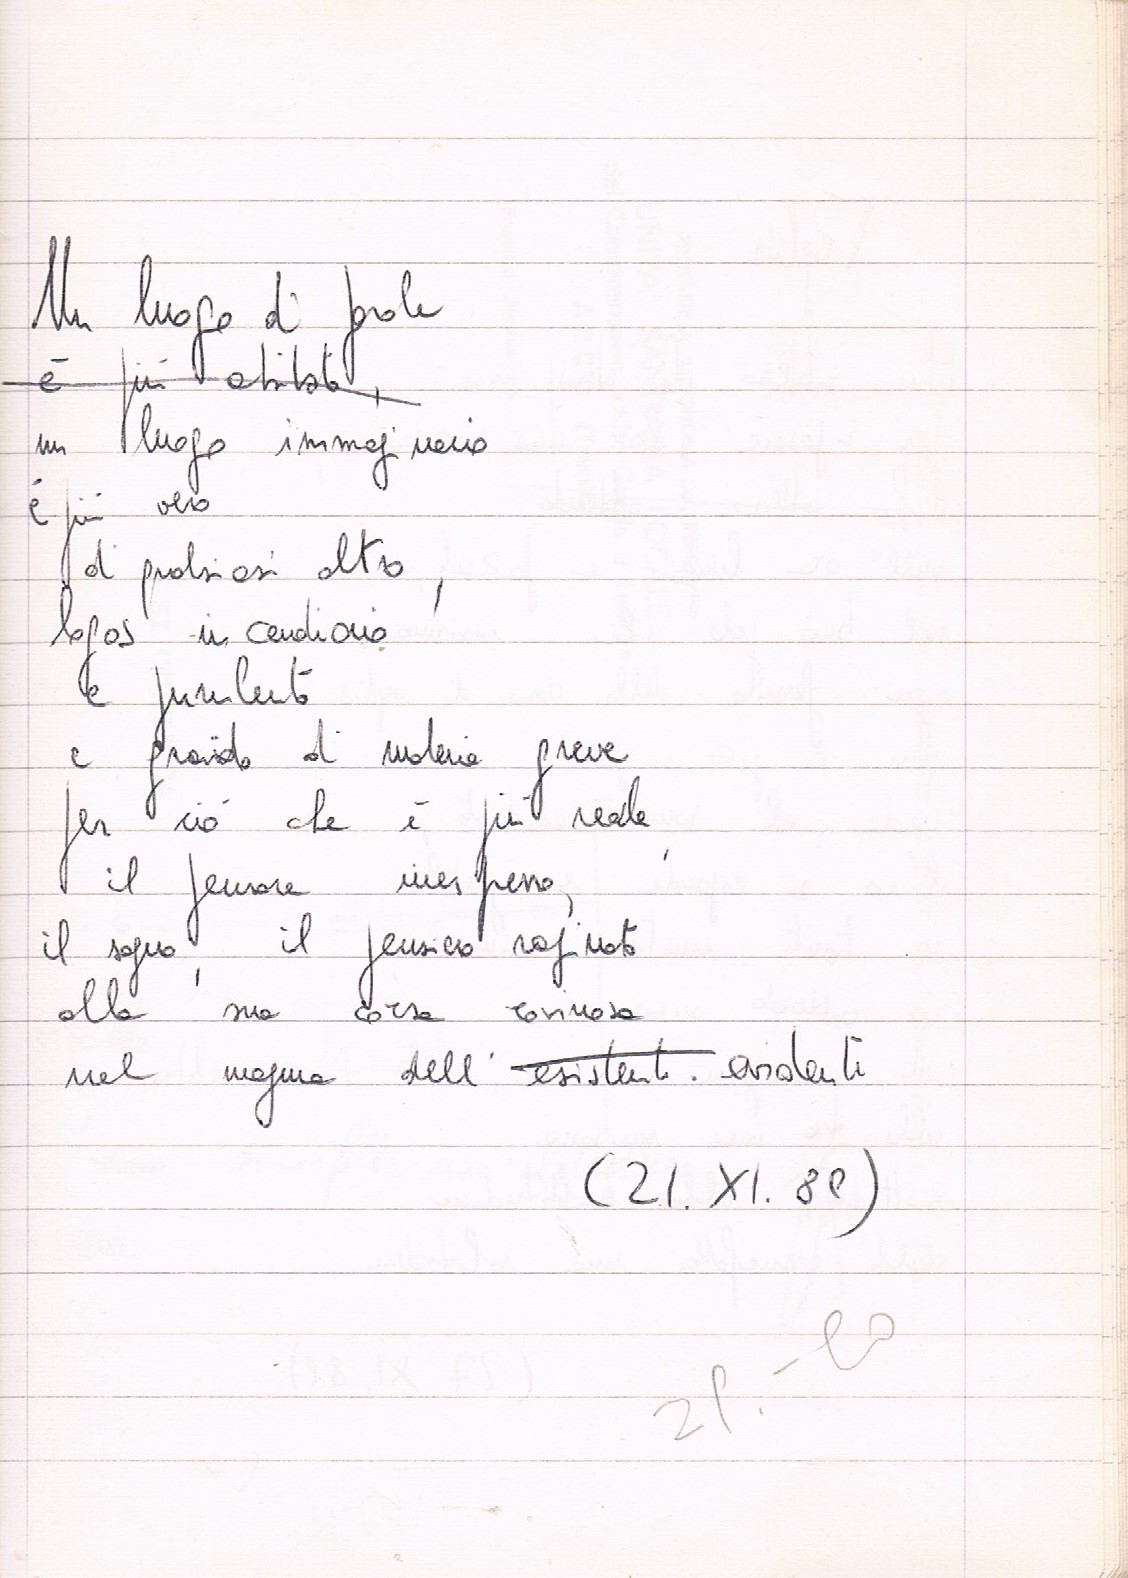 Un luogo di parole
è più abitato,
un luogo immaginario
è più vero
di qualsiasi altro,
logos incendiario
e purulento
e gravido di materia greve
per ciò che è più reale,
il pensare inespresso,
il sogno, il pensiero
alla sua corsa rovinosa
nel magma dell'esistente. evidente
(21. XI. 89)